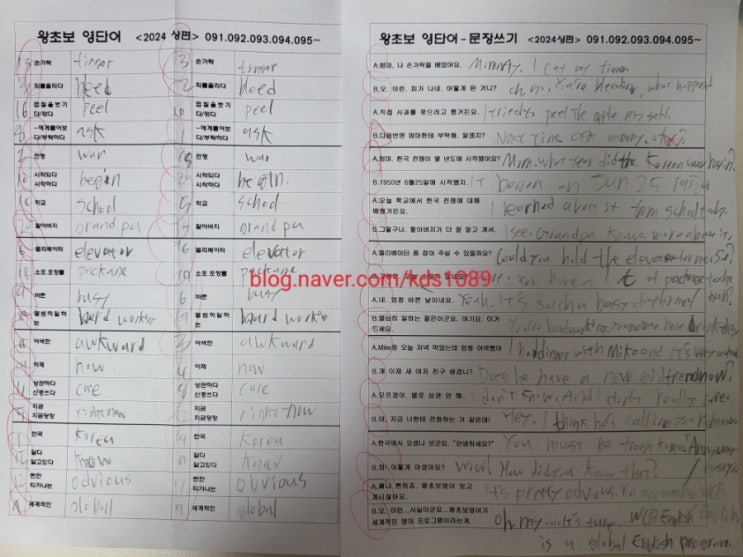 왕초보 영단어 <2024 상편> 091.092.093.094.095~
손가락 finger 손가락 finger
피를흘리다 bleed bleed
껍질을벗기다/깎다 peel 10 peel
~에게물어보다/부탁하다 ask 1 ask
전쟁 war 전쟁 war
시작되다 시작하다 begin 시작되다 시작하다 begin.
학교 school 학교 school
할아버지 grand pa 할아버지 grand pa
엘리베이터 elevator 6 엘리베이터 elevator
소포.포장물 package 소포.포장물 package
바쁜 busy 6 바쁜 busy
열심히일하는 hard worker 열심히일하는 hard worker
어색한 awkward 3 어색한 awkward
이제 now. 이제 now
상관하다 신경쓰다 care 상관하다 신경쓰다 care
지금 당장 right now 지금 당장 right now
한국 Korea 한국 Korea
알다 알고있다 know 알다 알고있다 know
뻔한 티가나는 obvious 뻔한 티가나는 obvious
세계적인 global 9 세계적인 global
왕초보 영단어 - 문장쓰기 <2024상편> 091.092.093.094.095~
A.엄마, 나 손가락을 베였어요. Mommy, I cut my finger.
B.오, 이런, 피가 나네. 어떻게 된 거니? oh no, You're bleeding, what happened
A.직접 사과를 깎으려고 했거든요. I tried to peel the apple myself.
B.다음번엔 엄마한테 부탁해, 알겠지? Next time ask mommy,
A.엄마, 한국 전쟁이 몇 년도에 시작했어요? Mom, what year did the Korean war begin?
B.1950년 6월25일에 시작했지. It began on Jun 25
A.오늘 학교에서 한국 전쟁에 대해 배웠거든요. I learned about it from school today.
B.그렇구나, 할아버지가 더 잘 알고 계셔. I see, Grandpa knows
A.엘리베이터 좀 잡아 주실 수 있을까요? Could you hold the elevator for me sir?
have a lot of package today
A.네. 엄청 바쁜 날이네요. Yeah, It's such a busy day for me
B.열심히 일하는 젊은이군요. 여기요, 이거 드세요. You're hardworking
A.Mike랑 오늘 저녁 먹었는데 엄청 어색했어 I had dinner with Mike and it's very awkward
B.걔 이제 새 여자 친구 생겼니? Does he have a new girlfriend now?
A.모르겠어. 별로 상관 안 해. I don't know. And I don't really care.
B.야, 지금 너한테 전화하는 거 같은데! Hey, I think he's calling you right now
A.한국에서 오셨나 보군요. "안녕하세요?" You must be from Korea. Annyeong haseyo
B.와! 어떻게 아셨어요? Wow! How did you know that?
A.꽤나 뻔하죠. 왕초보영어 보고 계시잖아요. It's pretty obvious. You are watching
B.오, 이런...사실이군요..왕초보영어가 세계적인 영어 프로그램이라는게. oh my...it's true. English
is a global English program.
blog.naver.com/kds1089